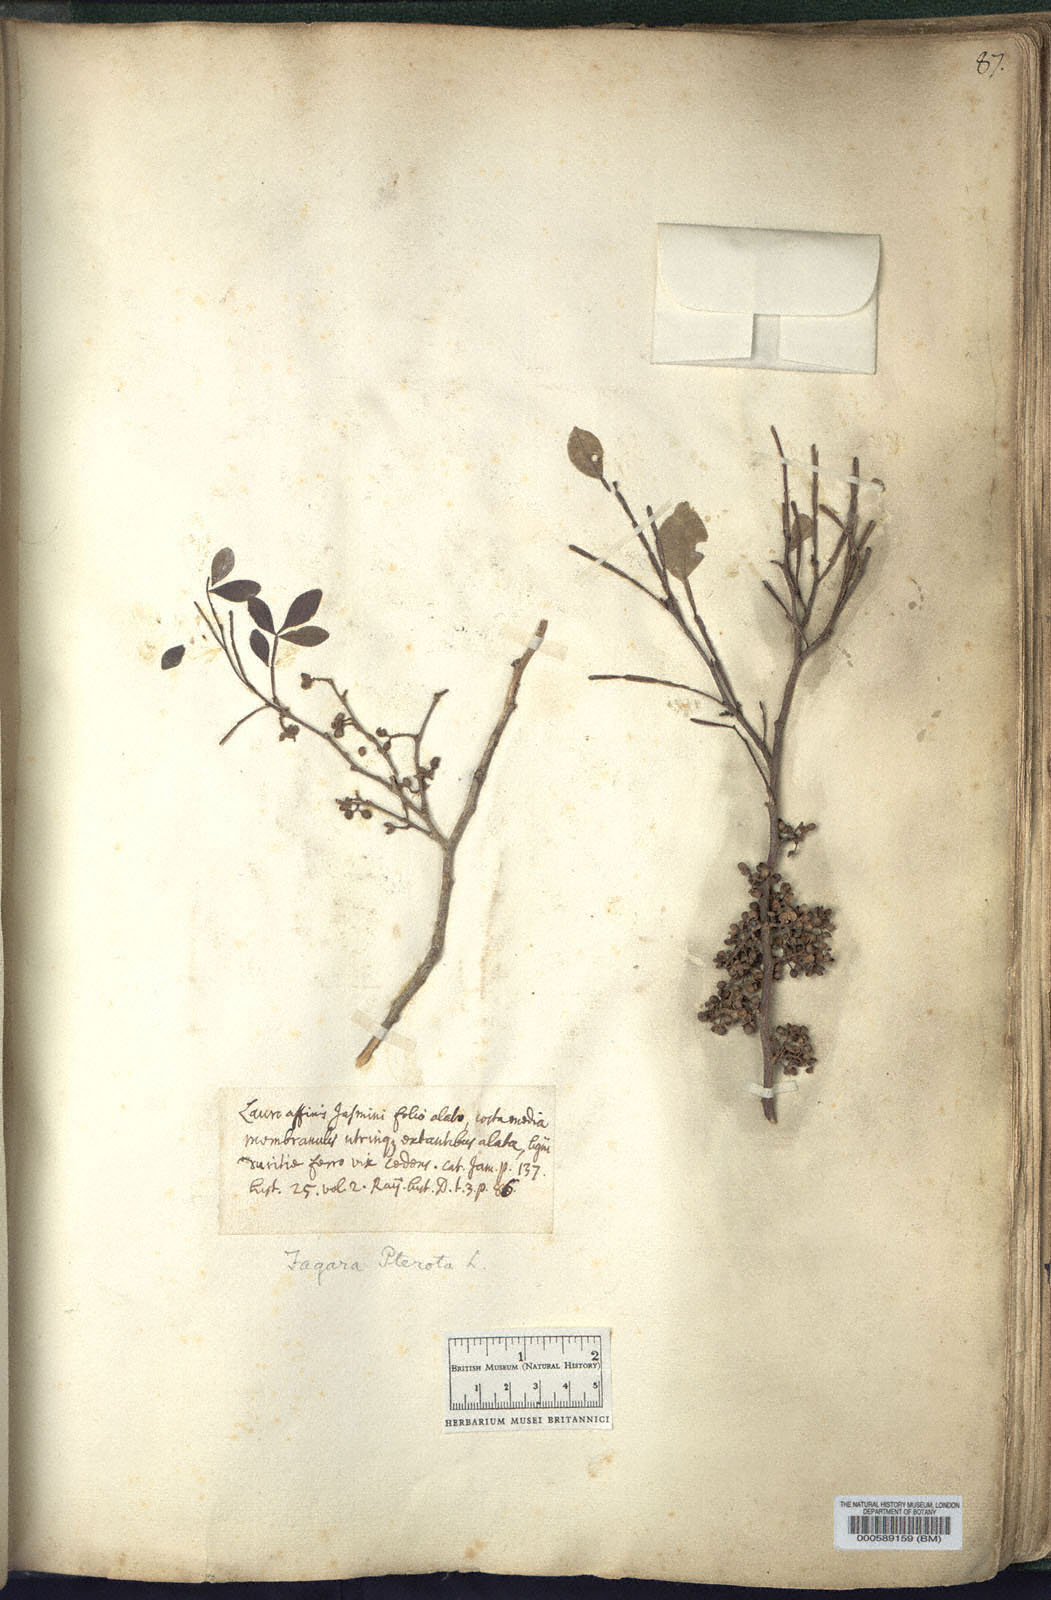 87.
Lauro affinis Jasmini folio alato, costa media
membranulis utrinq; extantibus alata, ligni
duritie ferro vix cedens. Cat. Jam. p. 137.
hist. 25. vol. 2. Raij. hist. D. t. 3. p. 86
Fagara Pterota L.
1 2
BRITISH MUSEUM (NATURAL HISTORY)
1 2 3 4 5
HERBARIUM MUSEI BRITANNICI
THE NATURAL HISTORY MUSEUM, LONDON
DEPARTMENT OF BOTANY
000589159 (BM)